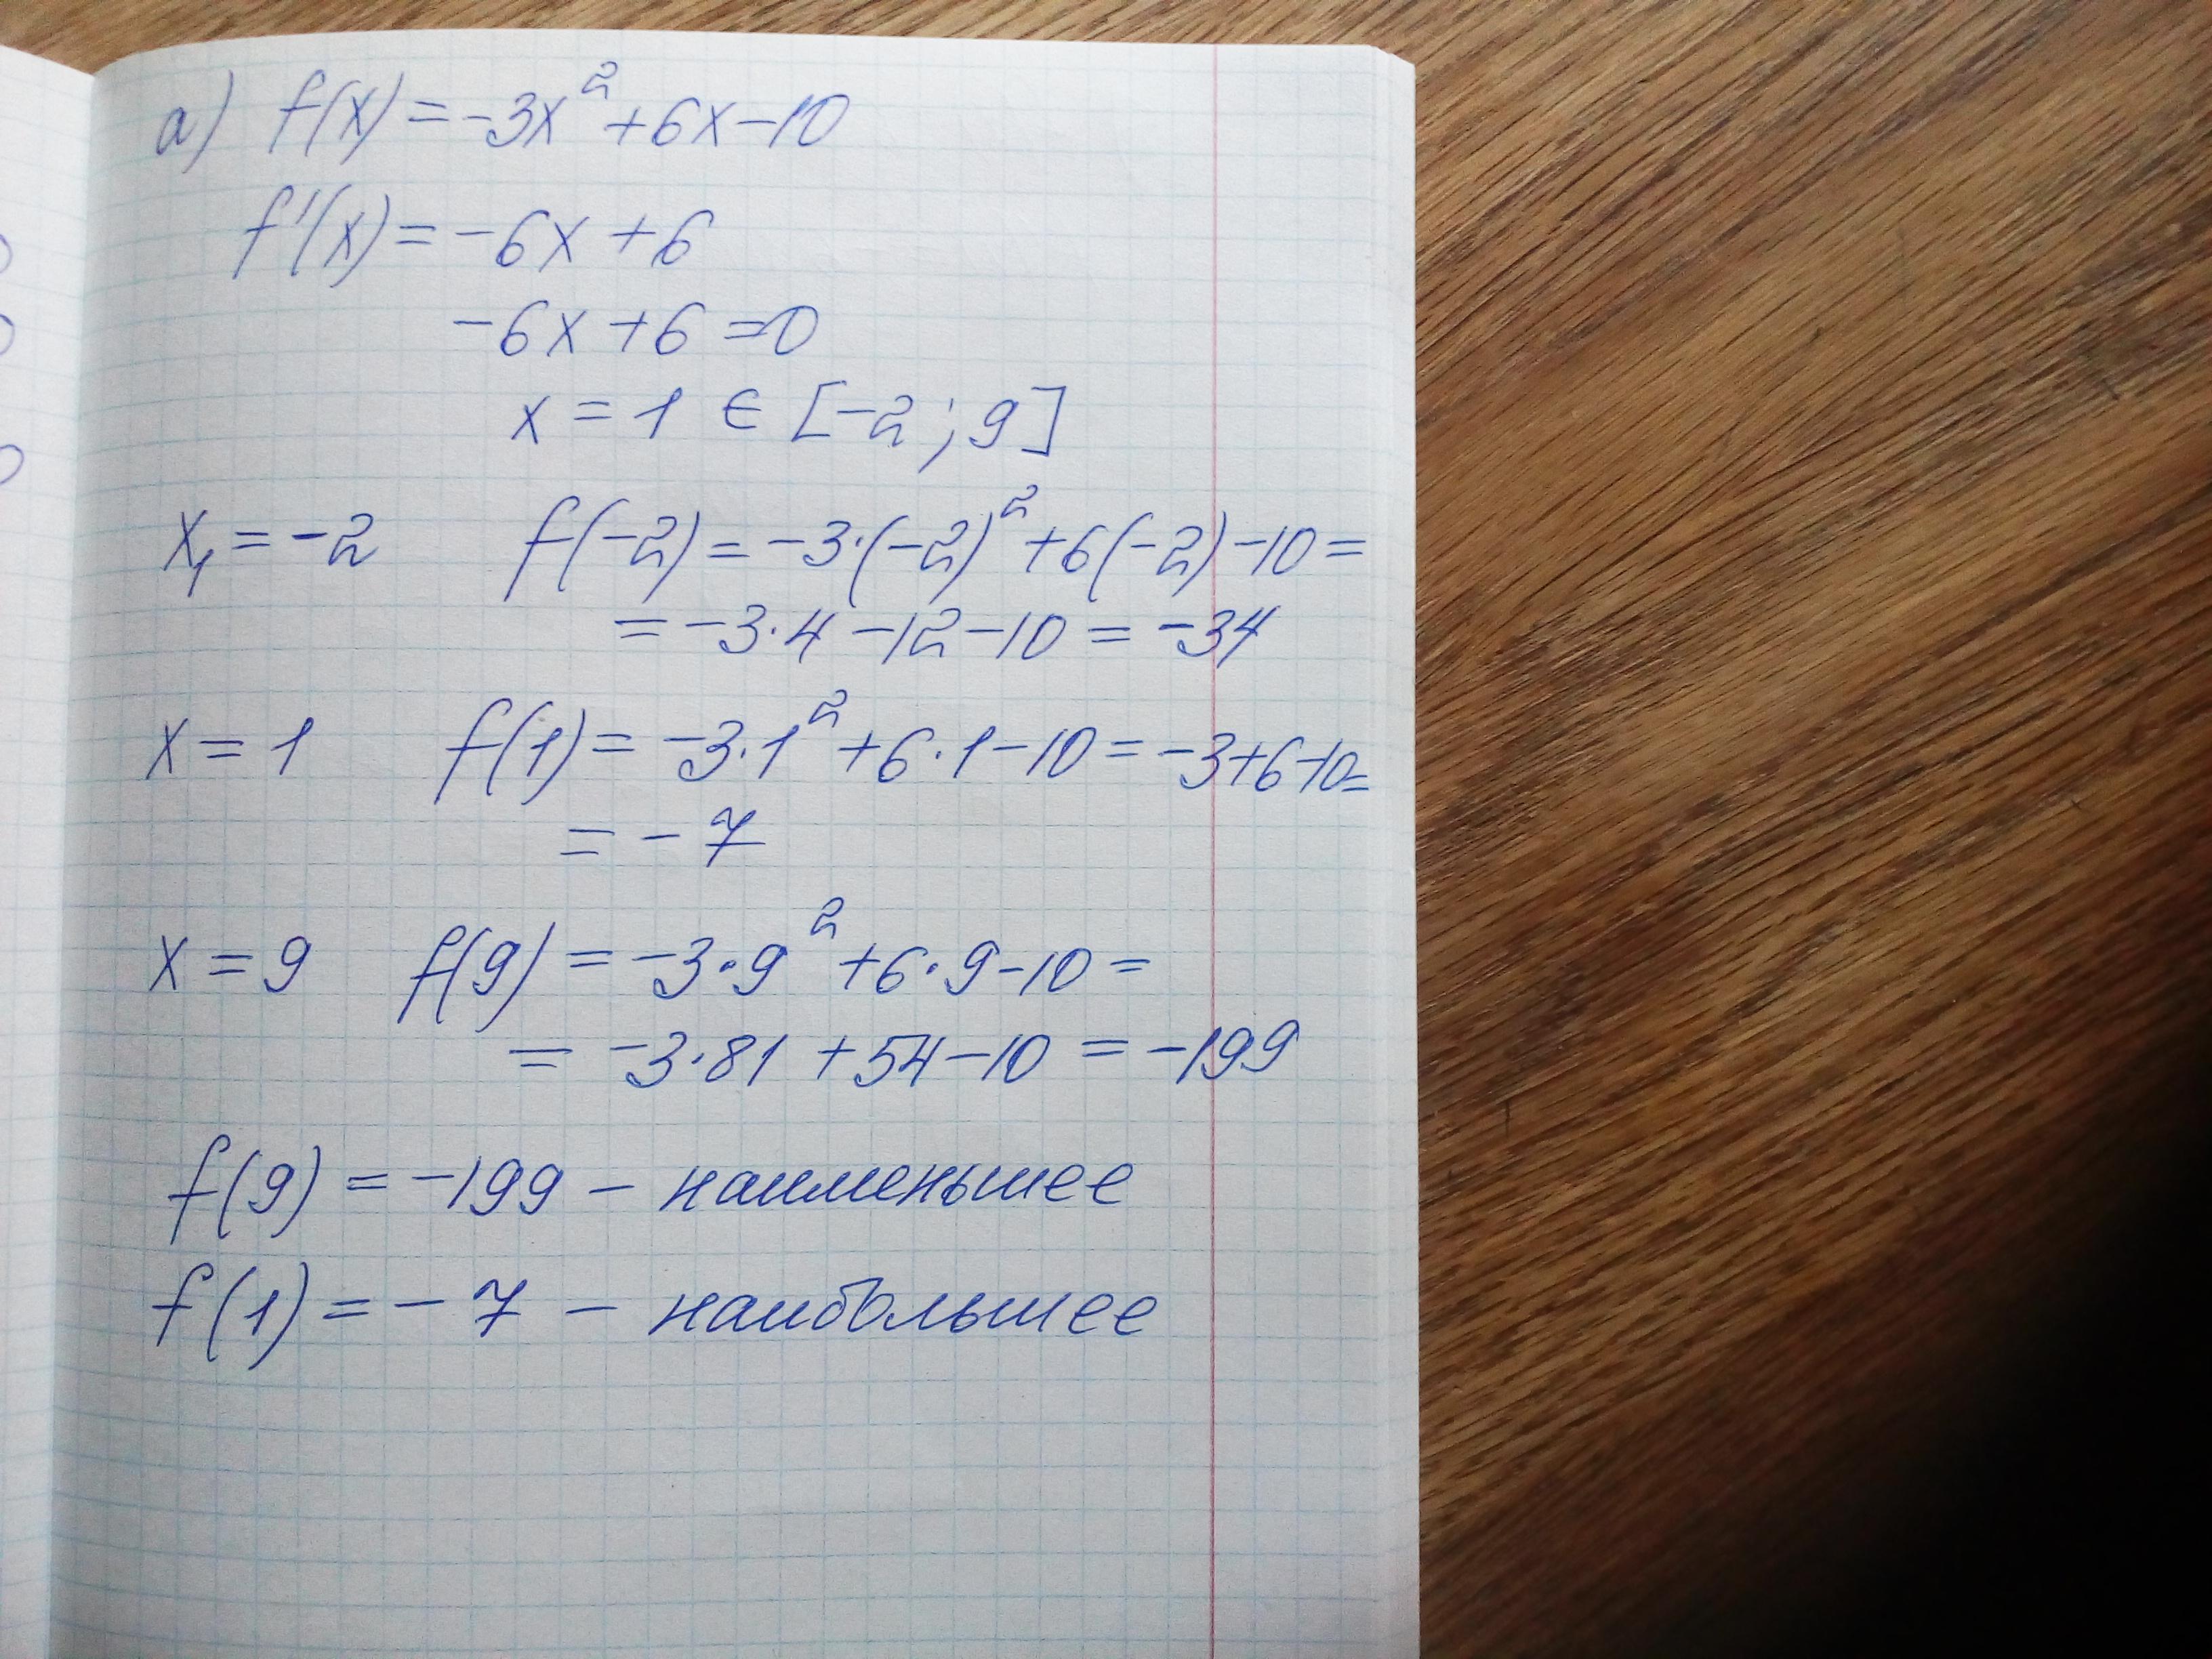 а) f(x) = -3x² + 6x - 10
f'(x) = -6x + 6
-6x + 6 = 0
x = 1 ∈ [-2; 9]
x₁ = -2 f(-2) = -3·(-2)² + 6(-2) - 10 =
= -3·4 - 12 - 10 = -34
x = 1 f(1) = -3·1² + 6·1 - 10 = -3+6-10=
= -7
x = 9 f(9) = -3·9² + 6·9 - 10 =
= -3·81 + 54 - 10 = -199
f(9) = -199 - наименьшее
f(1) = -7 - наибольшее